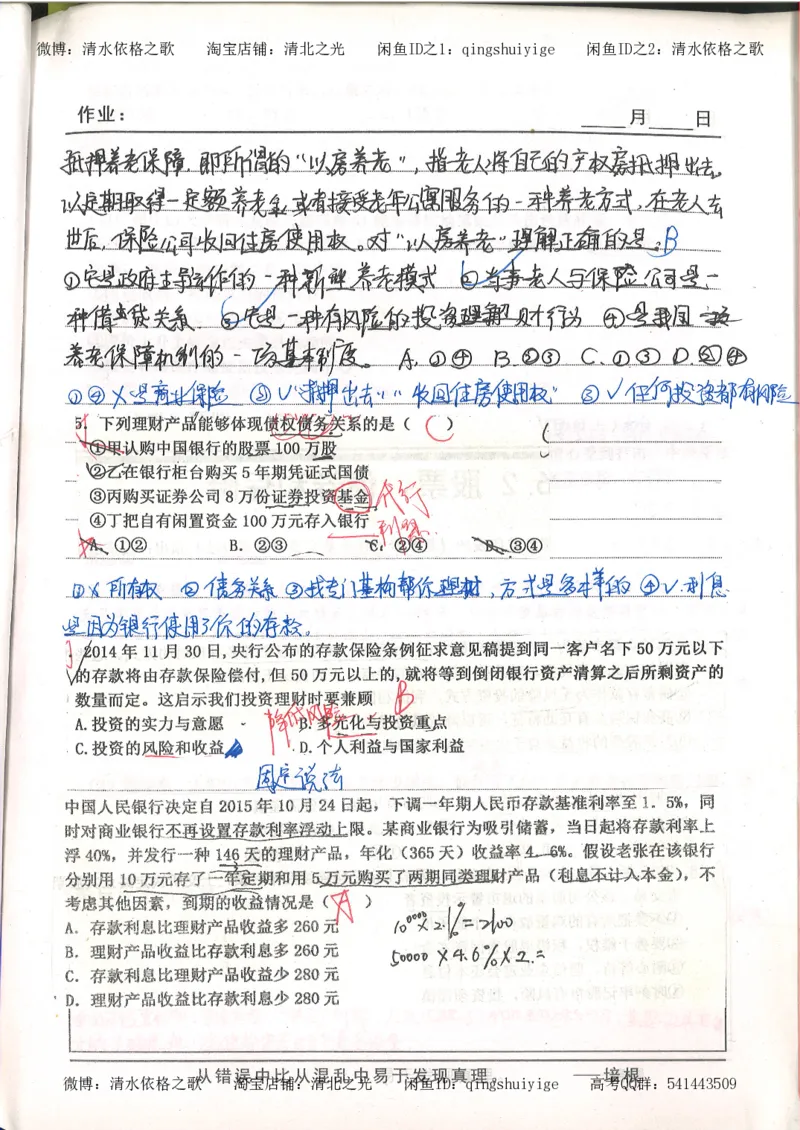 微博：清水依格之歌 淘宝店铺：清北之光 闲鱼ID之1：qingshuiyige 闲鱼ID之2：清水依格之歌
作业： 月 日
抵押养老保障，即所谓的“以房养老”，指老人将自己的产权房抵押出去，
以定期取得一定额养老金或者接受老年公寓服务的一种养老方式，在老人去
世后，保险公司收回住房使用权。对“以人房养老”理解正确的是：B
①它是政府主导运作的一种新型养老模式 ②当事老人与保险公司是一
种借贷关系. ③它是一种有风险的投资理财行为 ④是我国
养老保障机制的一项基本制度。 A.①④ B.②③ C.①③ D.②④
①④X是商业保险 ②√“抵押出去”“收回住房使用权” ③√任何投资都有风险
5. 下列理财产品能够体现债权债务关系的是（ C ）
①甲认购中国银行的股票 100 万股
②乙在银行柜台购买 5 年期凭证式国债
③丙购买证券公司 8 万份证券投资基金 代行
④丁把自有闲置资金 100 万元存入银行
A. ①② B. ②③ C. ②④ D. ③④
①X所有权 ②债务关系 ③找专门基构帮你理财，方式是多样的 ④√.利息
是因为银行使用了你的存款。
2014 年 11 月 30 日,央行公布的存款保险条例征求意见稿提到同一客户名下 50 万元以下
的存款将由存款保险偿付,但 50 万元以上的,就将等到倒闭银行资产清算之后所剩资产的
数量而定。这启示我们投资理财时要兼顾 B
A.投资的实力与意愿 降低风险 B.多元化与投资重点
C.投资的风险和收益 D.个人利益与国家利益
固定说法
中国人民银行决定自 2015 年 10 月 24 日起，下调一年期人民币存款基准利率至 1．5%，同
时对商业银行不再设置存款利率浮动上限。某商业银行为吸引储蓄，当日起将存款利率上
浮 40%，并发行一种 146 天的理财产品，年化（365 天）收益率 4．6%。假设老张在该银行
分别用 10 万元存了一年定期和用 5 万元购买了两期同类理财产品（利息不计入本金），不
考虑其他因素，到期的收益情况是（ A ）
A．存款利息比理财产品收益多 260 元 10⁰⁰⁰⁰×2.1%=2100
B．理财产品收益比存款利息多 260 元 50000×4.6%×2.=
C．存款利息比理财产品收益少 280 元
D．理财产品收益比存款利息少 280 元
从错误中比从混乱中易于发现真理 ——培根
微博：清水依格之歌 淘宝店铺：清北之光 闲鱼ID之1：qingshuiyige 高考QQ群：541443509